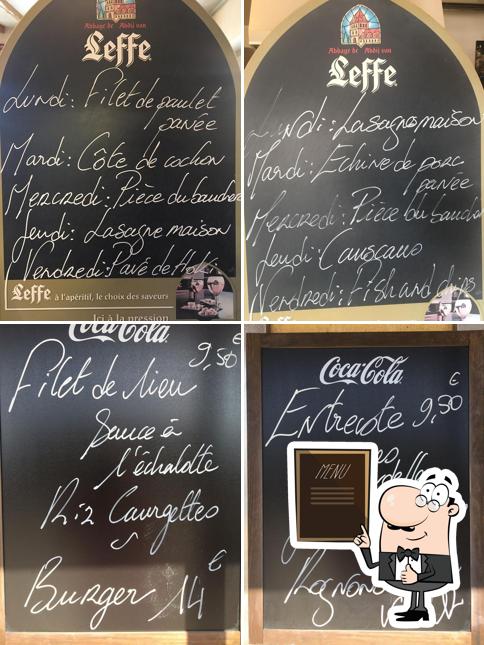 Abbaye de Abdij van
Leffe
Lundi: Filet de poulet
panée
Mardi: Côte de cochon
Mercredi: Pièce du boucher
Jeudi: Lasagne maison
Vendredi: Pavé de
Leffe à l'apéritif, le choix des saveurs
Ici à la pression
Abbaye de Abdij van
Leffe
Lundi: Lasagne maison
Mardi: Echine de porc
panée
Mercredi: Pièce du
Jeudi: Couscous
Vendredi: Fish and chips
Coca-Cola
9,50 €
Filet de lieu
Sauce à
l'échalotte
Riz Courgettes
Burger 14 €
Coca-Cola
€
Entrecote 9,50
MENU